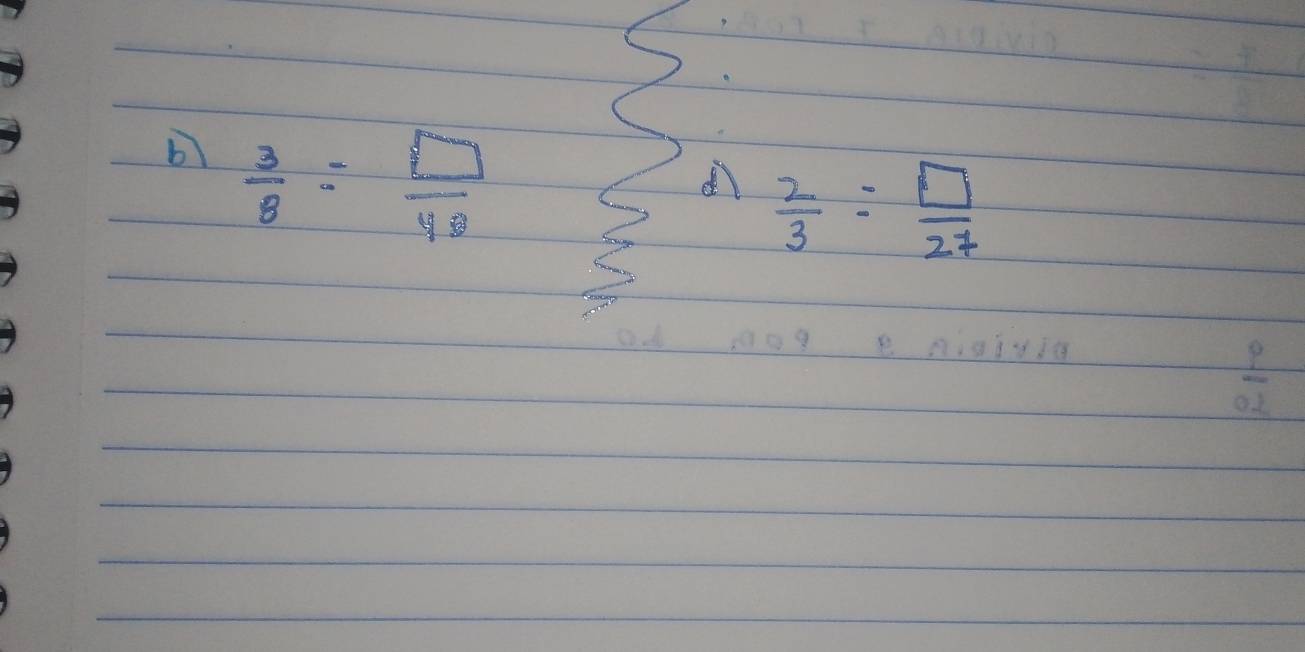 b) 3/8 = □/48
d) 2/3 = □/27